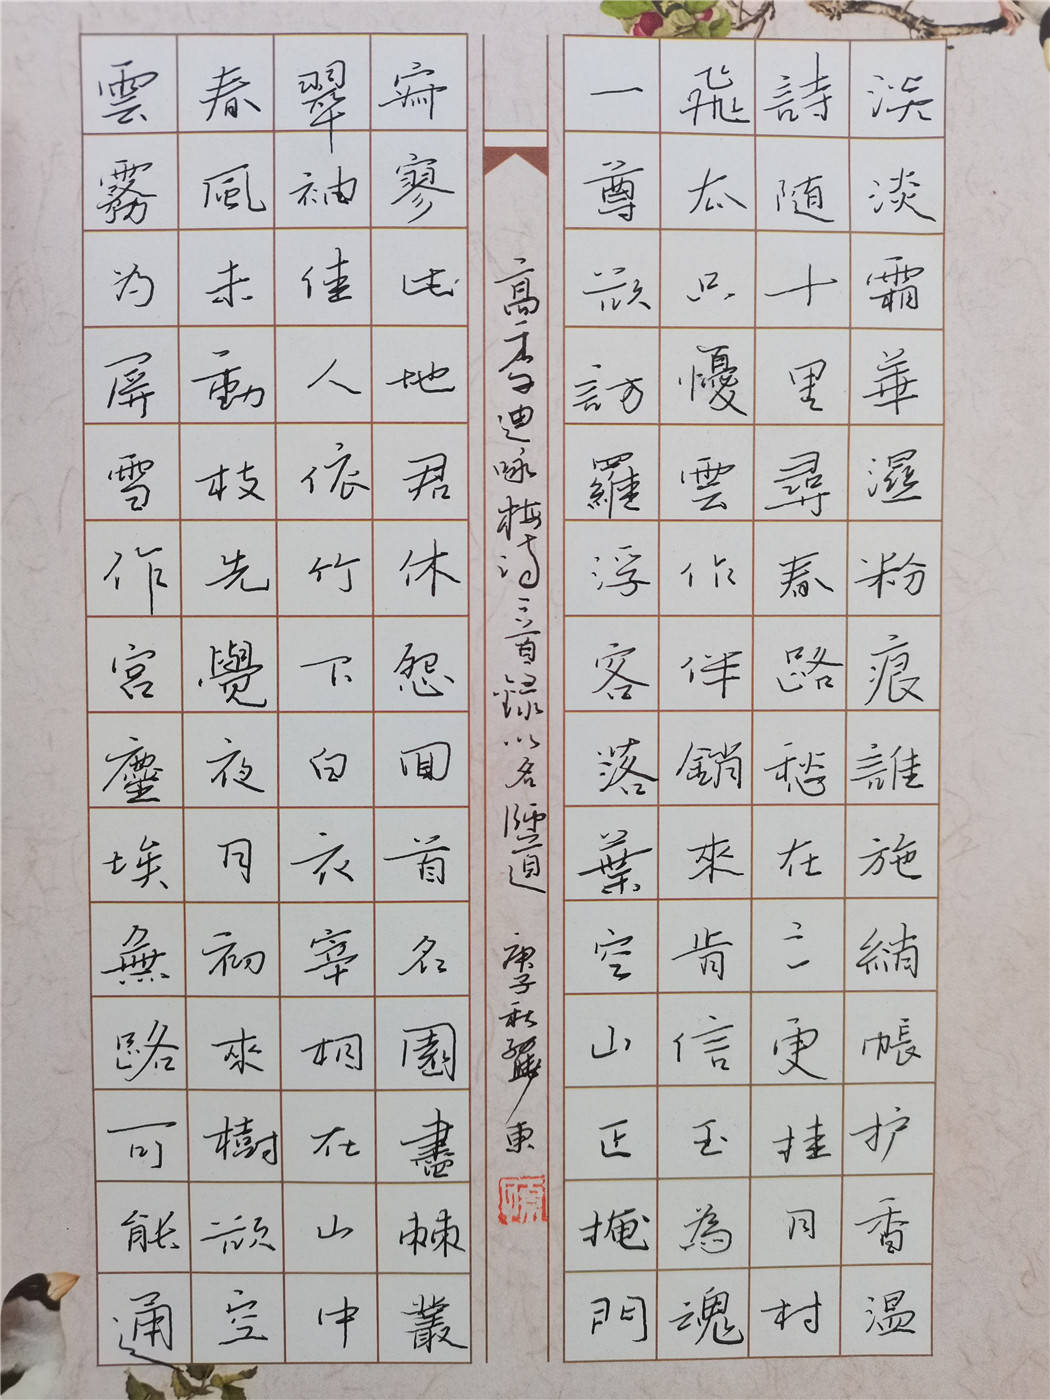 淡淡霜華濕粉痕誰施綃帳护香温
詩随十里尋春路愁在三更挂月村
飛去只憂雲作伴銷來肯信玉為魂
一尊欲訪羅浮客落葉空山正掩門
雲霧為屏雪作宮塵埃無路可能通
春風未動枝先覺夜月初來樹欲空
翠袖佳人依竹下白衣宰相在山中
寂寥此地君休怨回首名園盡棘叢
高季迪咏梅诗三首録以名道 庚子秋東